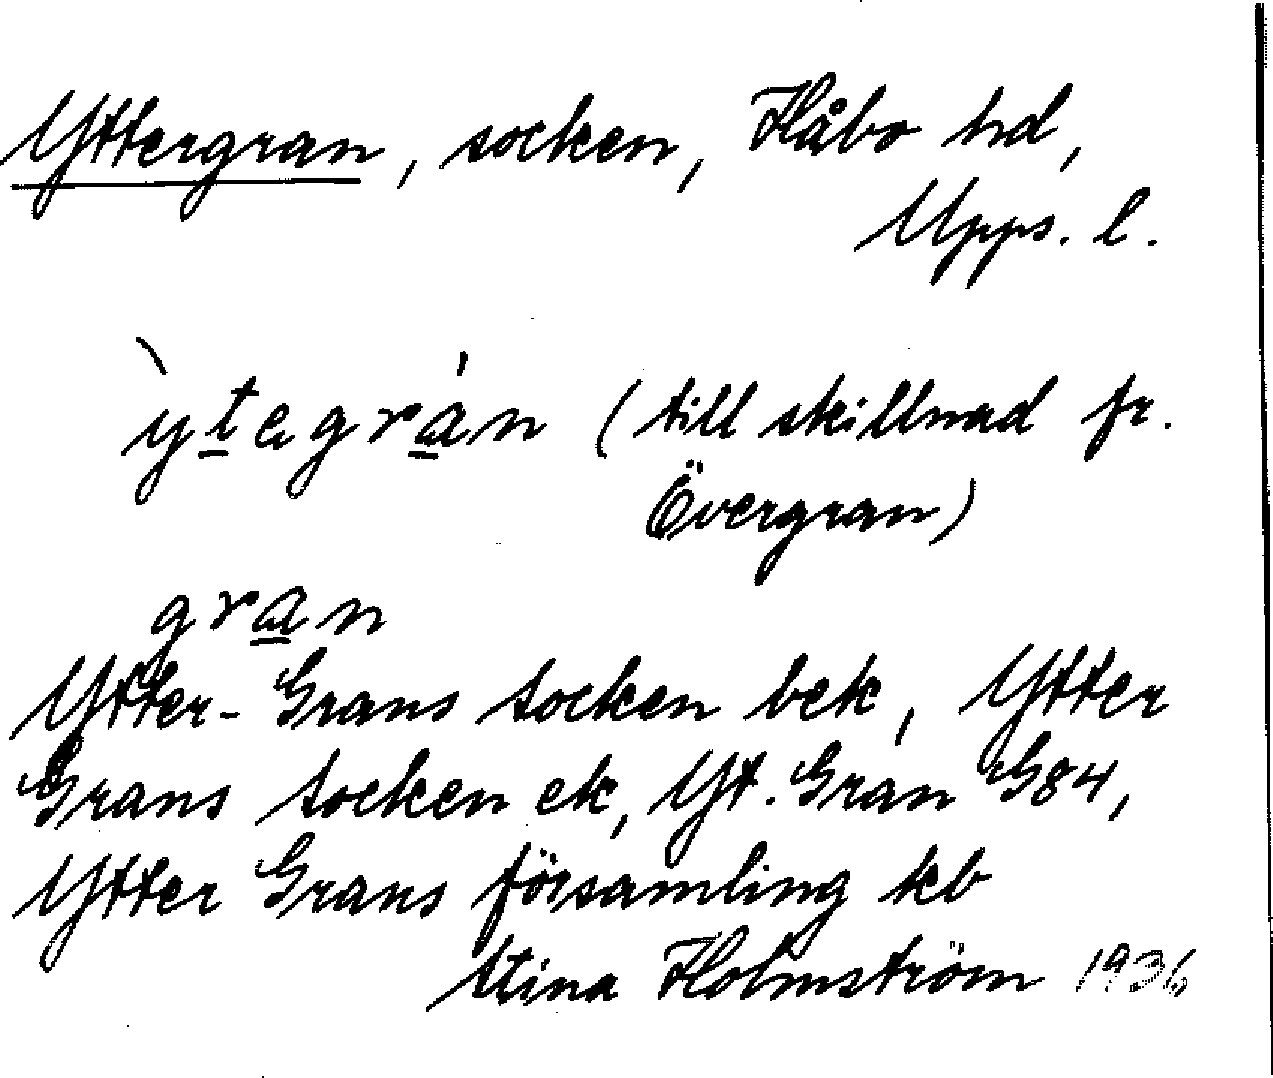 Yttergran, socken, Håbo hd,
Upps. l.
ỳtegrán (till skillnad fr.
Övergran)
gran
Ytter-Grans socken bek, Ytter
Grans socken ek, Yt. Gran G84,
Ytter Grans församling kb
Stina Holmström 1936